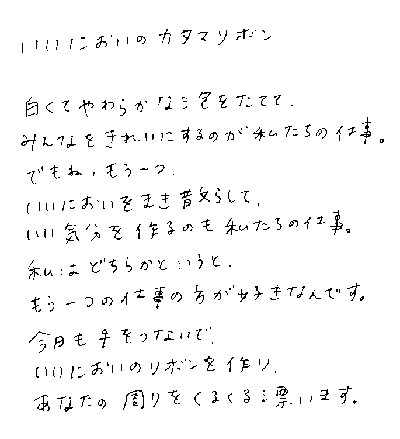 いいにおいのカタマリボン
白くてやわらかな泡をたてて、
みんなをきれいにするのが私たちの仕事。
でもね、もう一つ、
いいにおいをまき散らして、
いい気分を作るのも私たちの仕事。
私はどちらかというと、
もう一つの仕事の方が好きなんです。
今日も手をつないで、
いいにおいのリボンを作り、
あなたの周りをくるくる漂います。